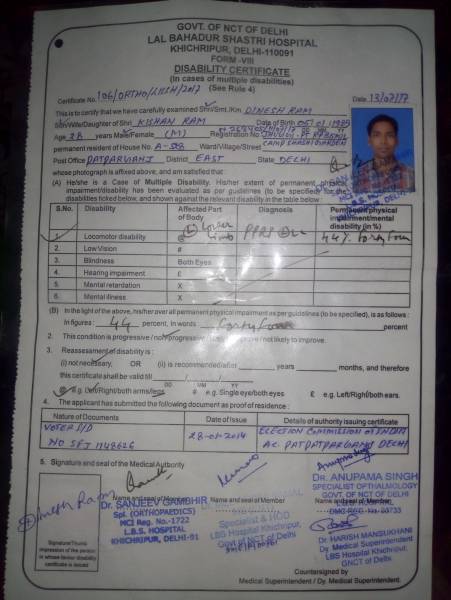 GOVT. OF NCT OF DELHI
LAL BAHADUR SHASTRI HOSPITAL
KHICHRIPUR, DELHI-110091
FORM -VIII
DISABILITY CERTIFICATE
(In cases of multiple disabilities)
(See Rule 4)
Certificate No. 106/ORTHO/LBSH/2017 Date 13/07/17
This is to certify that we have carefully examined Shri/Smt./Km. DINESH RAM
Son/Wife/Daughter of Shri KISHAN RAM Date of Birth 05/01/1989
Age 28 years Male/Female (M) Registration No
permanent resident of House No. A-58 Ward/Village/Street CAMP SHASHI GARDEN
Post Office PATPARGANJ District EAST State DELHI
whose photograph is affixed above, and am satisfied that :
(A) He/she is a Case of Multiple Disability. His/her extent of permanent physical
impairment/disability has been evaluated as per guidelines (to be specified) for the
disabilities ticked below, and shown against the relevant disability in the table below :
S.No. Disability Affected Part of Body Diagnosis Permanent physical impairment/mental disability (in %)
1. Locomotor disability @ Lower limb PPRP 44% Forty Four
2. Low Vision #
3. Blindness Both Eyes
4. Hearing impairment £
5. Mental retardation X
6. Mental illness X
(B) In the light of the above, his/her over all permanent physical impairment as per guidelines (to be specified), is as follows :
In figures : 44 percent, In words Forty Four percent
2. This condition is progressive / non-progressive / likely to improve / not likely to improve.
3. Reassessment of disability is :
(i) not necessary, OR (ii) is recommended/after years months, and therefore
this certificate shall be valid till
DD MM YY
@ e.g. Left/Right/both arms/legs # e.g. Single eye/both eyes £ e.g. Left/Right/both ears.
4. The applicant has submitted the following document as proof of residence :
Nature of Documents Date of Issue Details of authority issuing certificate
VOTER I/D 28-01-2014 ELECTION COMMISSION OF INDIA
NO SFJ 1148626 AC. PATPARGANJ DELHI
5. Signature and seal of the Medical Authority
Dinesh Ram
Name and seal of Member Name and seal of Member Name and seal of Member
Dr. SANJEEV GAMBHIR
Spl. (ORTHOPAEDICS)
MCI Reg. No.-1722
L.B.S. HOSPITAL
KHICHRIPUR, DELHI-91
Specialist & HOD
LBS Hospital Khichripur,
Govt of NCT of Delhi
Dr. ANUPAMA SINGH
SPECIALIST OPTHALMOLOGY
GOVT. OF NCT OF DELHI
LBS HOSPITAL, KHICHRIPUR
Dr. HARISH MANSUKHANI
Dy. Medical Superintendent
LBS Hospital Khichripur,
GNCT of Delhi
Signature/Thumb
impression of the person
in whose favour disability
certificate is issued
Countersigned by
Medical Superintendent / Dy. Medical Superintendent.